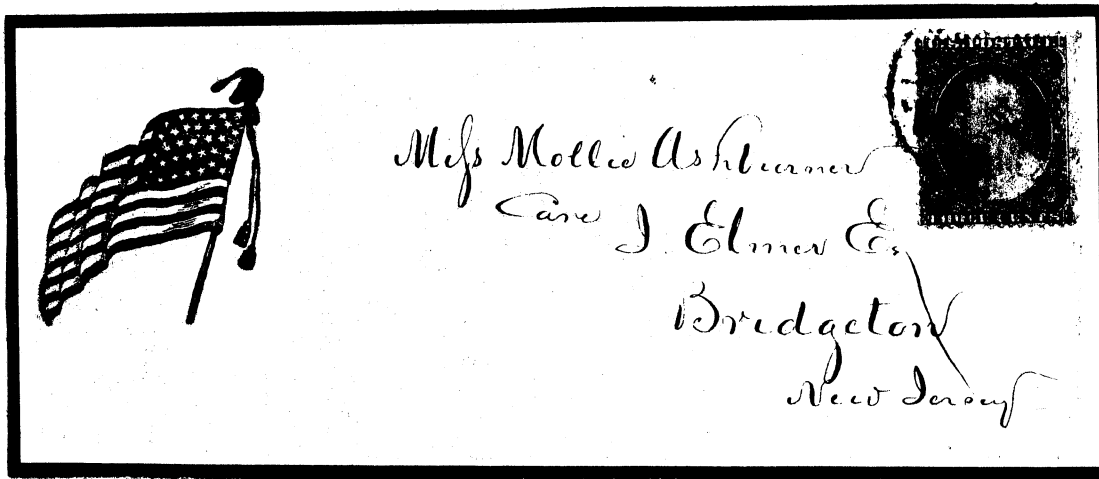 Miss Mollie Ashburner
Care J. Elmer Esq
Bridgeton
New Jersey
THREE CENTS